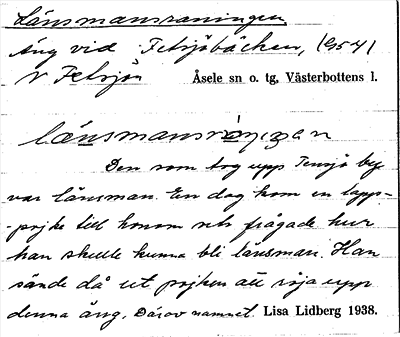 Länsmansraningen
Äng vid Tetsjöbäcken, (G5-4)
V Tetsjön Åsele sn o. tg, Västerbottens l.
länsmansrö́ninan
Den som tog upp Tensjö by
var länsman. En dag kom en lapp-
-pojke till honom och frågade hur
han skulle kunna bli länsman. Han
sände då ut pojken att röja upp
denna äng. Därav namnet. Lisa Lidberg 1938.